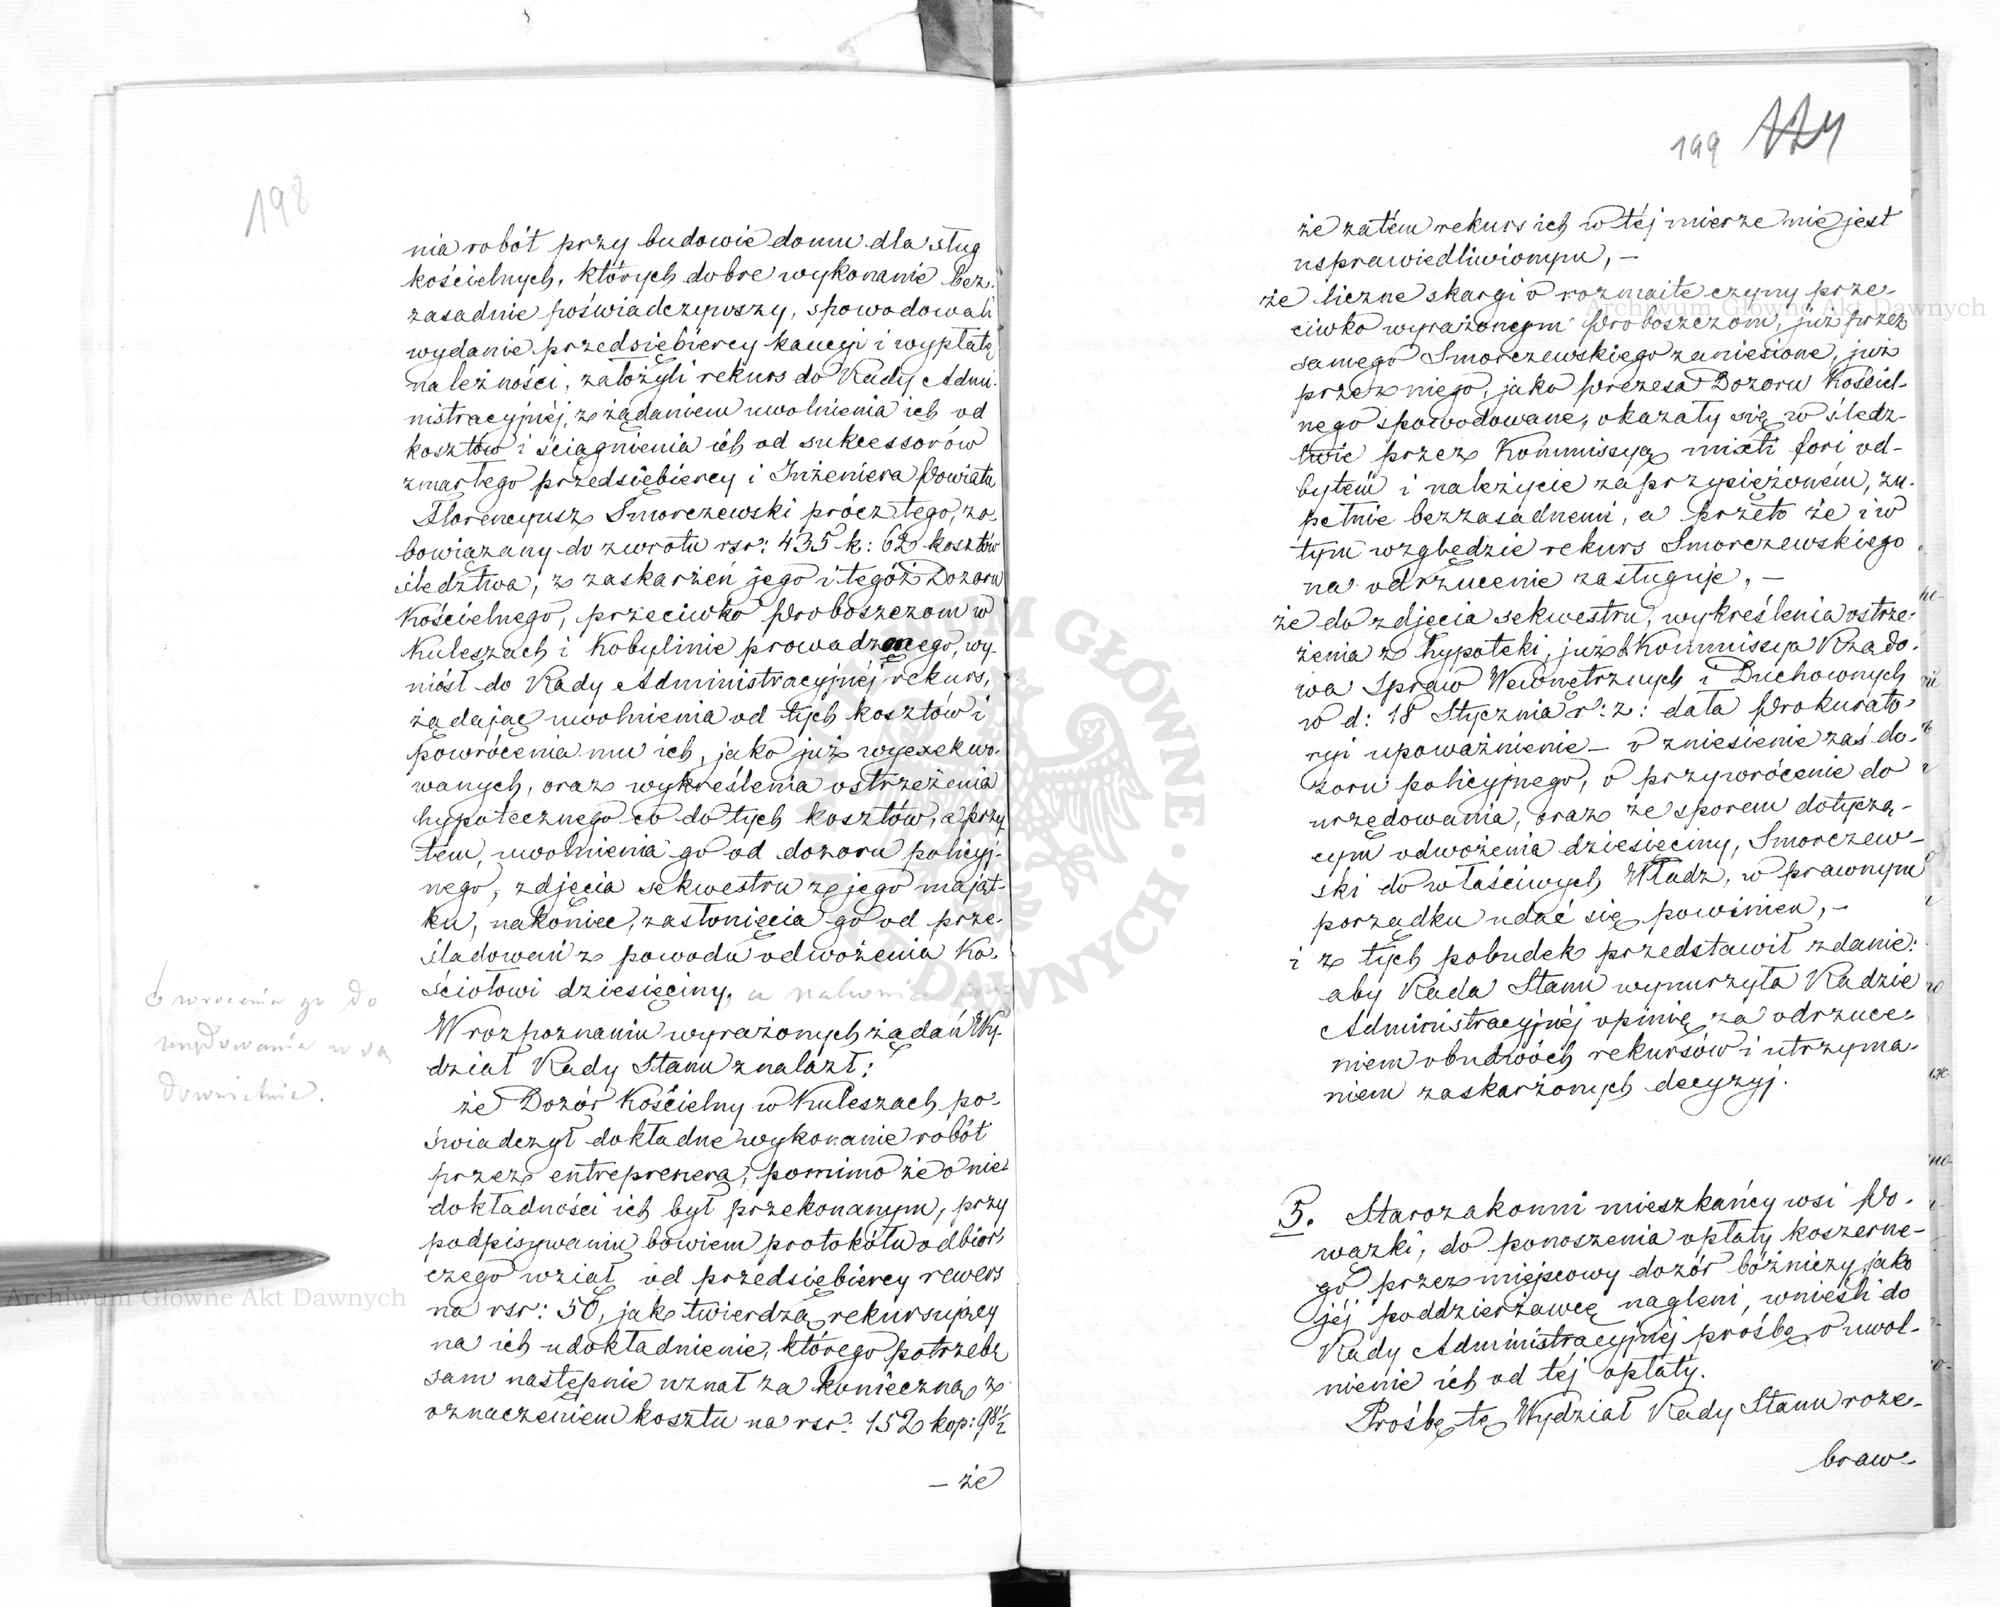 198
nia robót przy budowie domu dla sług
kościelnych, których dobre wykonanie bez-
zasadnie poświadczywszy, spowodowali
wydanie przedsiębiercy kaucyi i wypłatę
należności, założyli rekurs do Rady Admi-
nistracyjnéj, z żądaniem uwolnienia ich od
kosztów i ściągnienia ich od sukcessorów
zmarłego przedsiębiercy i Inżeniera Powiatu
Florencyusz Smorczewski prócz tego, zo-
bowiązany do zwrotu rsr: 435 k: 62 kosztów
śledztwa, z zaskarżeń jego i tegóż Dozoru
Kościelnego, przeciwko Proboszczom w
Kuleszach i Kobylinie prowadzonego, wy-
niósł do Rady Administracyjnéj rekurs,
żądając uwolnienia od tych kosztów i
powrócenia mu ich, jako już wyexekwo-
wanych, oraz wykreślenia ostrzeżenia
hypotecznego co do tych kosztów, a przy
tém, uwolnienia go od dozoru policyj-
nego, zdjęcia sekwestru z jego mająt-
ku, nakoniec, zasłonięcia go od prze-
śladowań z powodu odwożenia Ko-
ściołowi dziesięciny, a nakoniec
wrócenia go do
urzędowania w są
downictwie.
W rozpoznaniu wyrażonych żądań Wy-
dział Rady Stanu znalazł:
że Dozór Kościelny w Kuleszach po-
świadczył dokładne wykonanie robót
przez entreprenera, pomimo że o nie-
dokładności ich był przekonanym, przy
podpisywaniu bowiem protokółu odbior-
czego wziął od przedsiębiercy rewers
na rsr: 50, jak twierdzą rekursujący
na ich udokładnienie, którego potrzebę
sam następnie uznał za konieczną z
oznaczeniem kosztu na rsr: 152 kop: 98½
— że
199
że zatém rekurs ich w téj mierze nie jest
usprawiedliwionym, —
że liczne skargi o rozmaite czyny prze-
ciwko wyrażonym Proboszczom, już przez
samego Smorczewskiego zaniesione, już
przez niego, jako Prezesa Dozoru Kościel-
nego spowodowane, okazały się w śledz-
twie przez Kommissyą mixti fori od-
bytém i należycie zaprzysiężoném, zu-
pełnie bezzasadnemi, a przeto że i w
tym względzie rekurs Smorczewskiego
na odrzucenie zasługuje, —
że do zdjęcia sekwestru, wykreślenia ostrze-
żenia z hypoteki, już Kommissya Rządo-
wa Spraw Wewnętrznych i Duchownych
w d: 18 Stycznia r: z: dała Prokurato-
ryi upoważnienie — o zniesienie zaś do-
zoru policyjnego, o przywrócenie do
urzędowania, oraz ze sporem dotyczą-
cym odwożenia dziesięciny, Smorczew-
ski do właściwych Władz, w prawnym
porządku udać się powinien, —
i z tych pobudek przedstawił zdanie:
aby Rada Stanu wynurzyła Radzie
Administracyjnéj opinię za odrzuce-
niem obudwóch rekursów i utrzyma-
niem zaskarżonych decyzyj.
5. Starozakonni mieszkańcy wsi Po-
wązki, do ponoszenia opłaty koszerne-
go przez miejscowy dozór bóżniczy jako
jéj poddzierżawcę nagleni, wnieśli do
Rady Administracyjnéj prośbę o uwol-
nienie ich od téj opłaty.
Prośbę tę Wydział Rady Stanu roze-
braw-
Archiwum Główne Akt Dawnych
Archiwum Główne Akt Dawnych
ARCHIWUM GŁÓWNE · AKT DAWNYCH ·